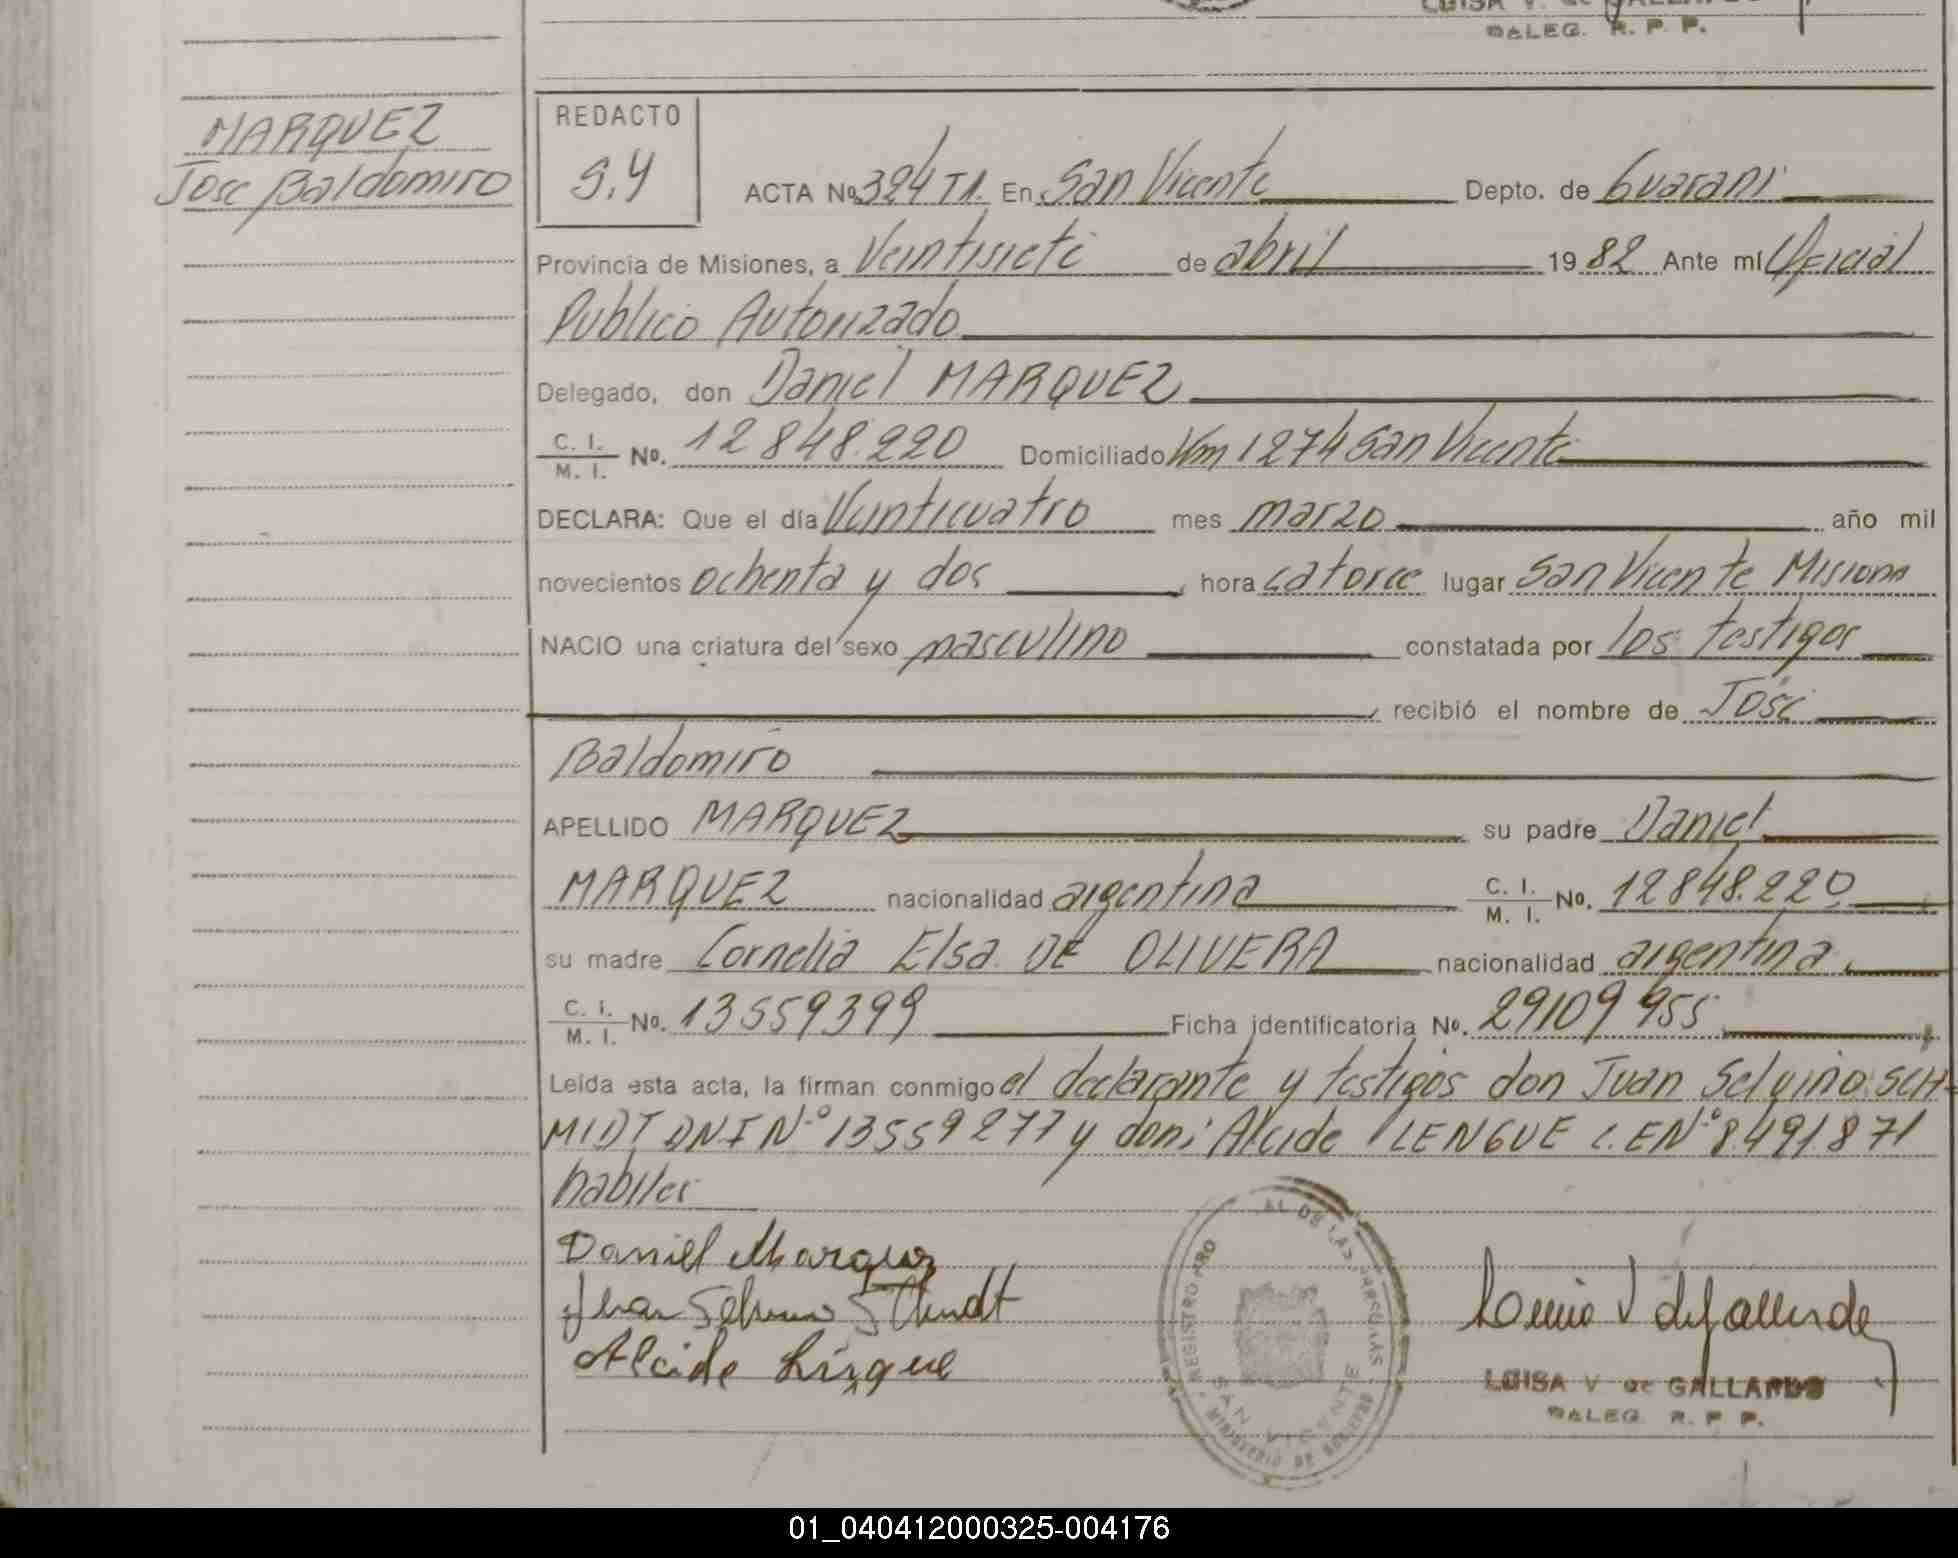 LUISA V. de GALLARDO
DELEG. R. P. P.
MARQUEZ
Jose Baldomiro
REDACTO
S.Y
ACTA Nº 324 T1. En San Vicente Depto. de Guarani
Provincia de Misiones, a Veintisiete de abril 1982 Ante mí Oficial
Publico Autorizado
Delegado, don Daniel MARQUEZ
C. I. / M. I. Nº. 12848.220 Domiciliado Km 1274 San Vicente
DECLARA: Que el día Veinticuatro mes marzo año mil
novecientos ochenta y dos, hora catorce lugar San Vicente Misiones
NACIO una criatura del sexo masculino constatada por los testigos
, recibió el nombre de José
Baldomiro
APELLIDO MARQUEZ su padre Daniel
MARQUEZ nacionalidad argentina C. I. / M. I. Nº. 12848.220
su madre Cornelia Elsa DE OLIVERA nacionalidad argentina
C. I. / M. I. Nº. 13559399 Ficha identificatoria Nº. 29109955
Leída esta acta, la firman conmigo el declarante y testigos don Juan Selvino SCH-
MIDT DNI Nº 13559277 y don: Alcide LENGUE L.E Nº 8.491.871
habiles
Daniel Marquez
Juan Selvino Schmidt
Alcide
Luisa V de Gallardo
REGISTRO PRO AL DE LAS PERSONAS
SAN VICENTE
MINISTERIO DE GOBIERNO
LUISA V de GALLARDO
DELEG. R. P. P.
01_040412000325-004176